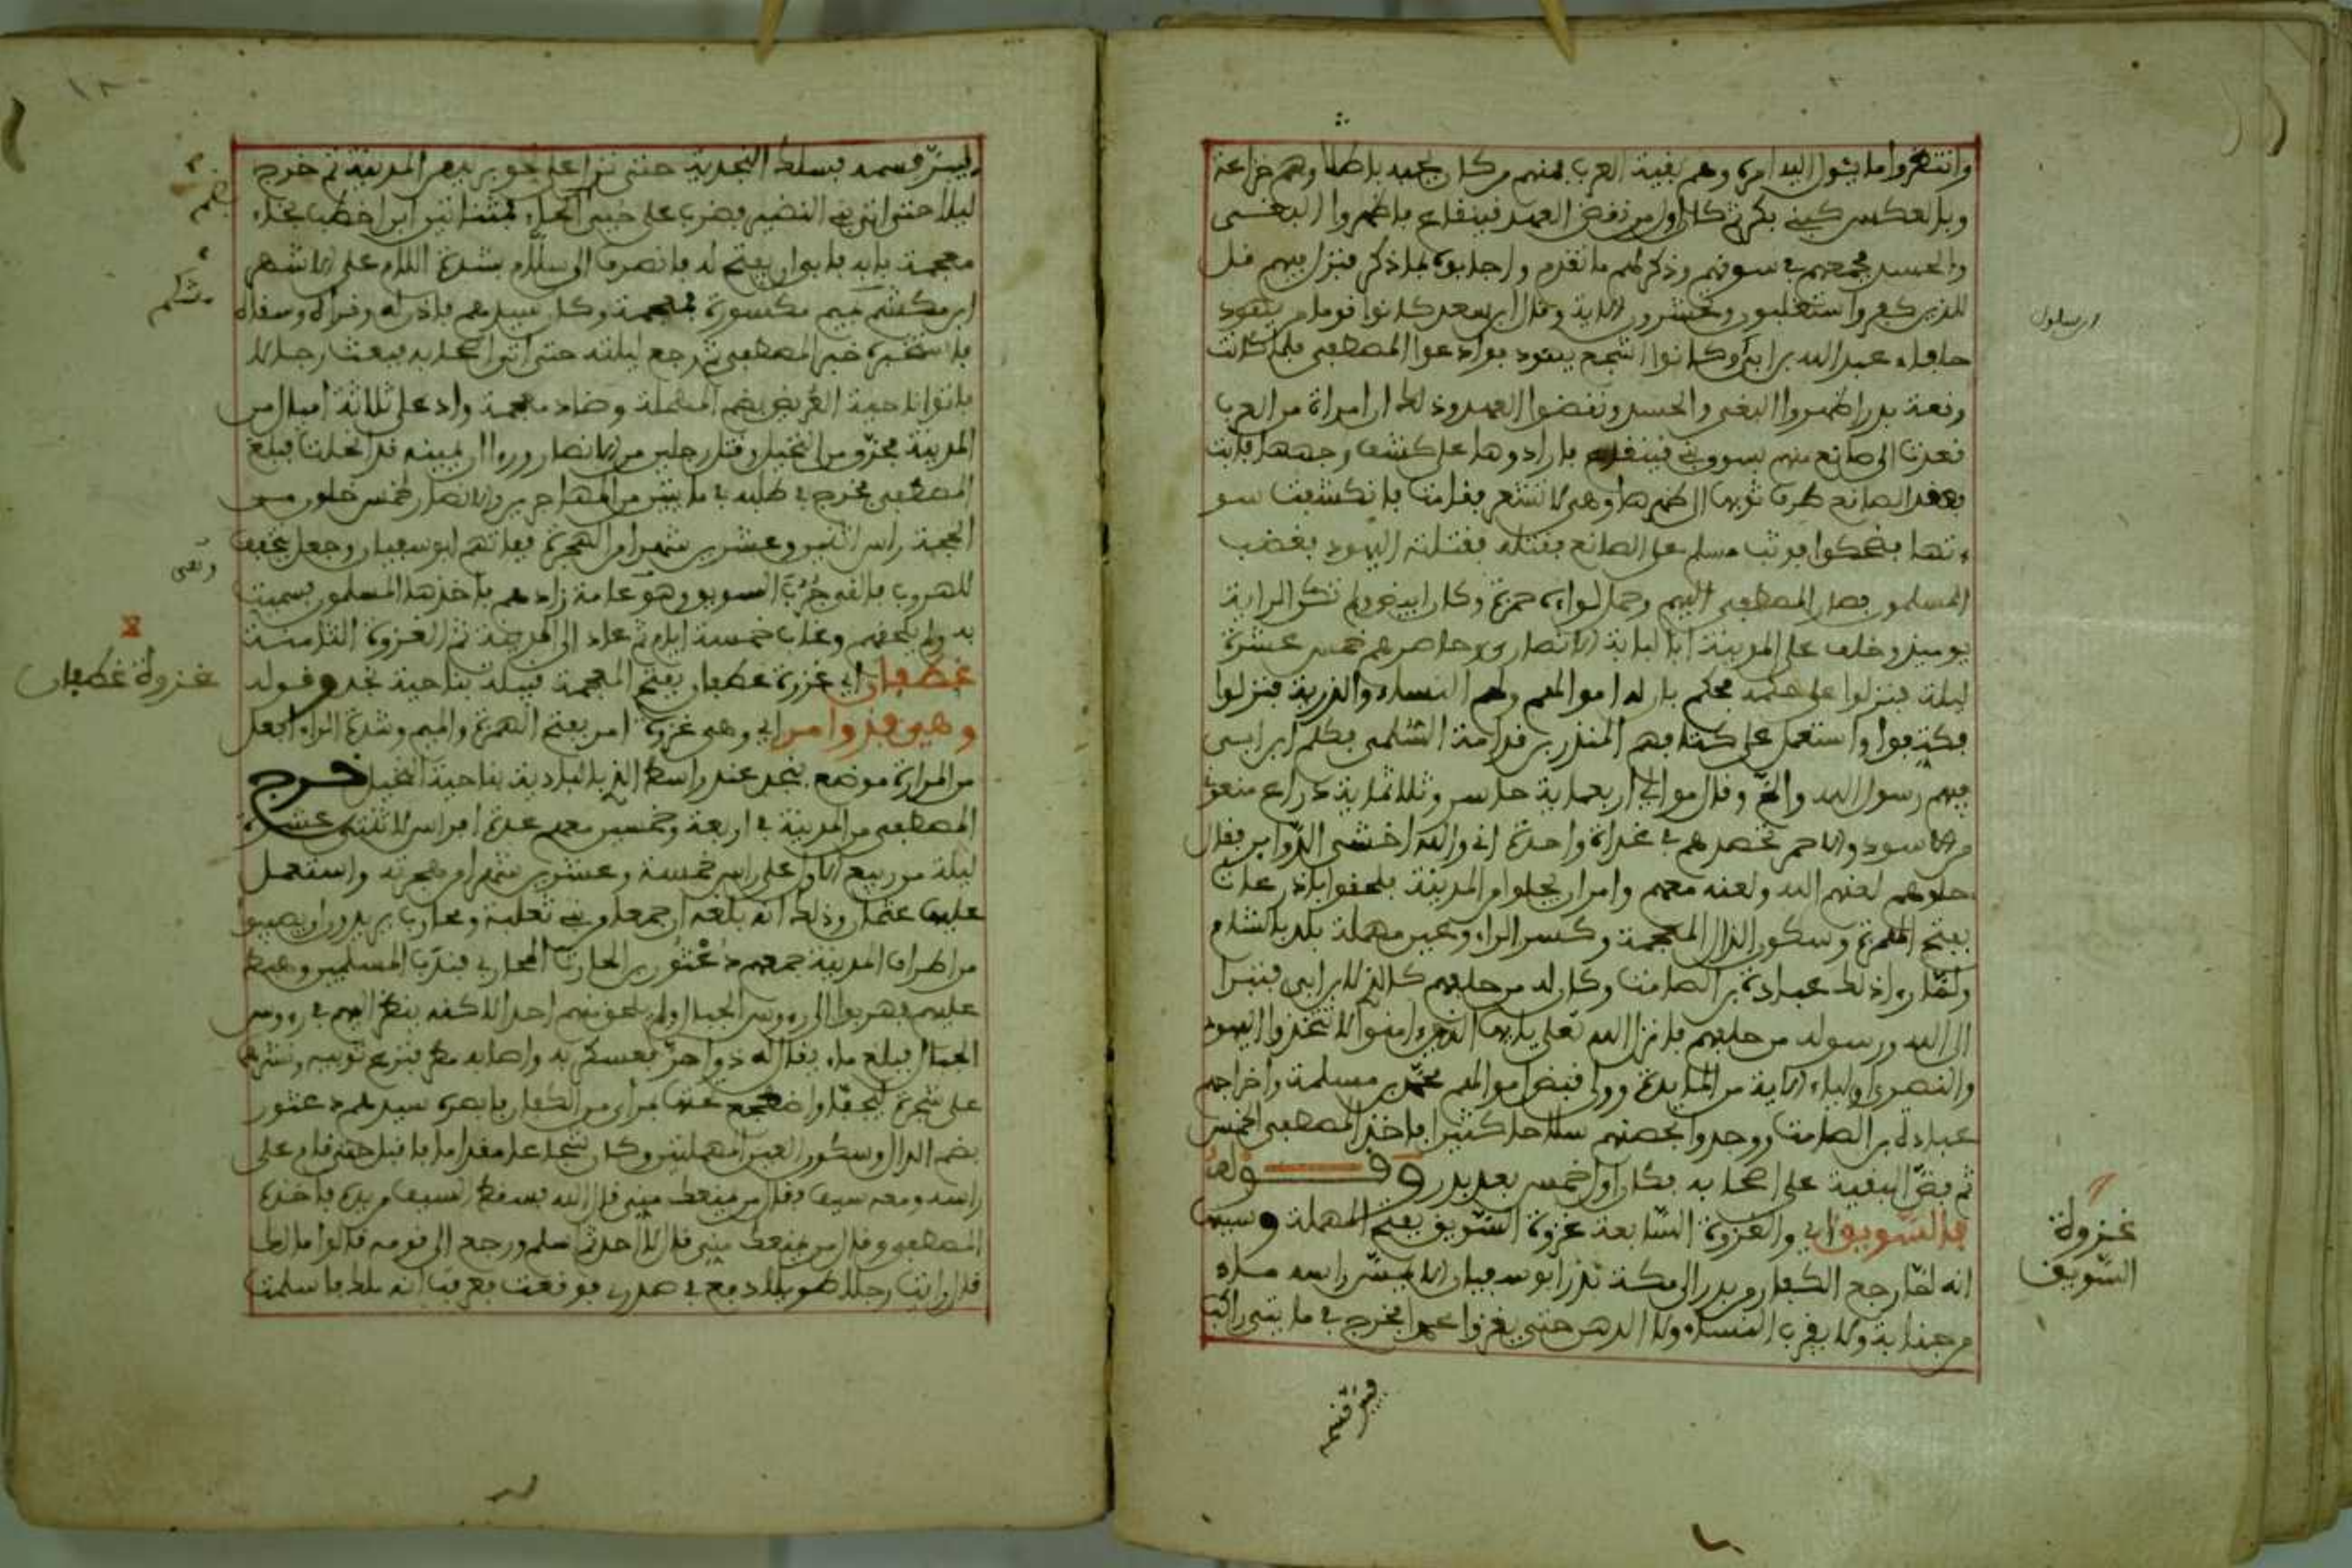 وانتظروا ما يئول اليه امره وهم بقية العرب فمنهم من كان يحبه باطنا وهم خزاعة
وبالعكس كبني بكر ثم كان اول من نقض العهد قينقاع فاظهروا البغي
والحسد فجمعهم في سوقهم وذكر لهم ما تقدم واجابوه بما ذكر فنزل فيهم قل
للذين كفروا ستغلبون وتحشرون الاية وقال ابن سعد كانوا قوما من يهود
حلفاء عبد الله بن ابي وكانوا اشجع يهود فوادعوا المصطفى فلما كانت
وقعة بدر اظهروا البغي والحسد ونقضوا العهد وذلك ان امراة من العرب
قعدت الى صائغ منهم بسوق بني قينقاع فارادوها على كشف وجهها فابت
فعقد الصائغ طرف ثوبها الى ظهرها وهي لا تشعر فقامت فانكشفت سو
ءتها فضحكوا فوثب مسلم على الصائغ فقتله فقتلته اليهود فغضب
المسلمون فصار المصطفى اليهم وحمل لواءه حمزة وكان ابيض ولم تكن الراية
يومئذ وخلف على المدينة ابا لبابة الانصاري وحاصرهم خمس عشرة
ليلة فنزلوا على حكمه فحكم بان له اموالهم ولهم النساء والذرية فنزلوا
فكتفوا واستعمل على كتافهم المنذر بن قدامة السلمي فكلم ابن ابي
فيهم رسول الله والح وقال موالي اربعماية حاسر وثلاثماية دارع منعوني
من الاسود والاحمر تحصدهم في غداة واحدة اني والله اخشى الدوائر فقال
خلوهم لعنهم الله ولعنه معهم وامر ان يجلوا من المدينة فلحقوا باذرعات
بفتح الهمزة وسكون الذال المعجمة وكسر الراء وعين مهملة بلد بالشام
ولما راى ذلك عبادة بن الصامت وكان له من حلفهم كالذي لابن ابي فتبرا
الى الله ورسوله من حلفهم فانزل الله تعلى يايها الذين ءامنوا لا تتخذوا اليهود
والنصرى اولياء الاية من المايدة وولي قبض اموالهم محمد بن مسلمة واخراجهم
عبادة بن الصامت ووجدوا بحصنهم سلاحا كثيرا فاخذ المصطفى الخمس
ثم فض البقية على اصحابه فكان اول خمس بعد بدر وقوله
فالسويق اي والغزوة السابعة غزوة السويق بفتح المهملة وسببها
انه لما رجع الكفار من بدر الى مكة نذر ابو سفيان الا يمس راسه ماء
من جنابة ولا يقرب النساء ولا الدهن حتى يغزوا محمدا فخرج في مايتي راكب
ابن سلول
غزوة
السويق
ليبر قسمه
ليبر قسمه فسلك النجدية حتى نزل على نحو بريد من المدينة ثم خرج
ليلا حتى اتى بني النضير فضرب على حيي بن اخطب بخاء
معجمة بابه فابى ان يفتح له فانصرف الى سلام بشدة اللام على الاشهر
ابن مشكم بميم مكسورة فمعجمة وكان سيدهم فاذن له وقراه وسقاه
فاستخبره خبر المصطفى ثم رجع ليلته حتى اتى اصحابه فبعث رجالا
فاتوا ناحية العريض بضم المهملة وضاد معجمة واد على ثلاثة اميال من
المدينة فحرقوا من النخيل وقتل رجلين من الانصار وراى ان يمينه قد انحلت فبلغ
المصطفى فخرج في طلبه في مايتين من المهاجرين والانصار لخمس خلون من
الحجة راس اثنين وعشرين شهرا من الهجرة ففاتهم ابو سفيان وجعل يخفف
للهروب فالقى جرب السويق وهو عامة زادهم فاخذها المسلمون فسميت
به ولم يلحقهم وغاب خمسة ايام ثم عاد الى المدينة ثم الغزوة الثامنة
غطفان اي غزوة غطفان بفتح المعجمة قبيلة بناحية نجد وقوله
وهي فذو امر اي وهي غزوة امر بفتح الهمزة والميم وشدة الراء افعل
من المرارة موضع بنجد عند واسط الذي بالبادية بناحية النخيل خرج
المصطفى من المدينة في اربعماية وخمسين معهم عدة افراس لاثنتي عشرة
ليلة من ربيع الاول على راس خمسة وعشرين شهرا من هجرته واستعمل
عليها عثمان وذلك انه بلغه ان جمعا من بني ثعلبة ومحارب يريدون ان يصيبوا
من اطراف المدينة جمعهم دعثور بن الحارث المحاربي فندب المسلمين وهبط
عليهم فهربوا الى رءوس الجبال ولم يلحق منهم احدا لاكنه ينظر اليهم في رءوس
الجبال فبلغ ماء يقال له ذوا امر فعسكر به واصابه مطر فنزع ثوبيه ونشرهما
على شجرة ليجفا واضطجع تحتها بمراى من الكفار فابصره سيدهم دعثور
بضم الدال وسكون العين المهملتين وكان شجاعا مقداما فاقبل حتى قام على
راسه ومعه سيف فقال من يمنعك مني قال الله فسقط السيف من يده فاخذه
المصطفى وقال من يمنعك مني قال لا احد ثم اسلم ورجع الى قومه قالوا ما لك
قال رايت رجلا طويلا دفع في صدري فوقعت فعرفت انه ملك فاسلمت
مشكم
غزوة غطفان